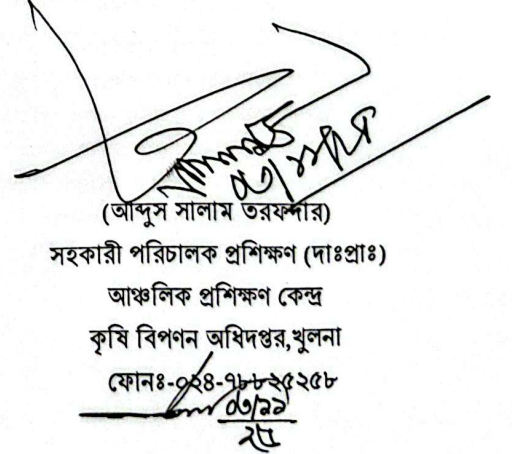 (আব্দুস সালাম তরফদার)
সহকারী পরিচালক প্রশিক্ষণ (দাঃপ্রাঃ)
আঞ্চলিক প্রশিক্ষণ কেন্দ্র
কৃষি বিপণন অধিদপ্তর,খুলনা
ফোনঃ-০২৪-৭৮৮২৫২৫৮
২৫